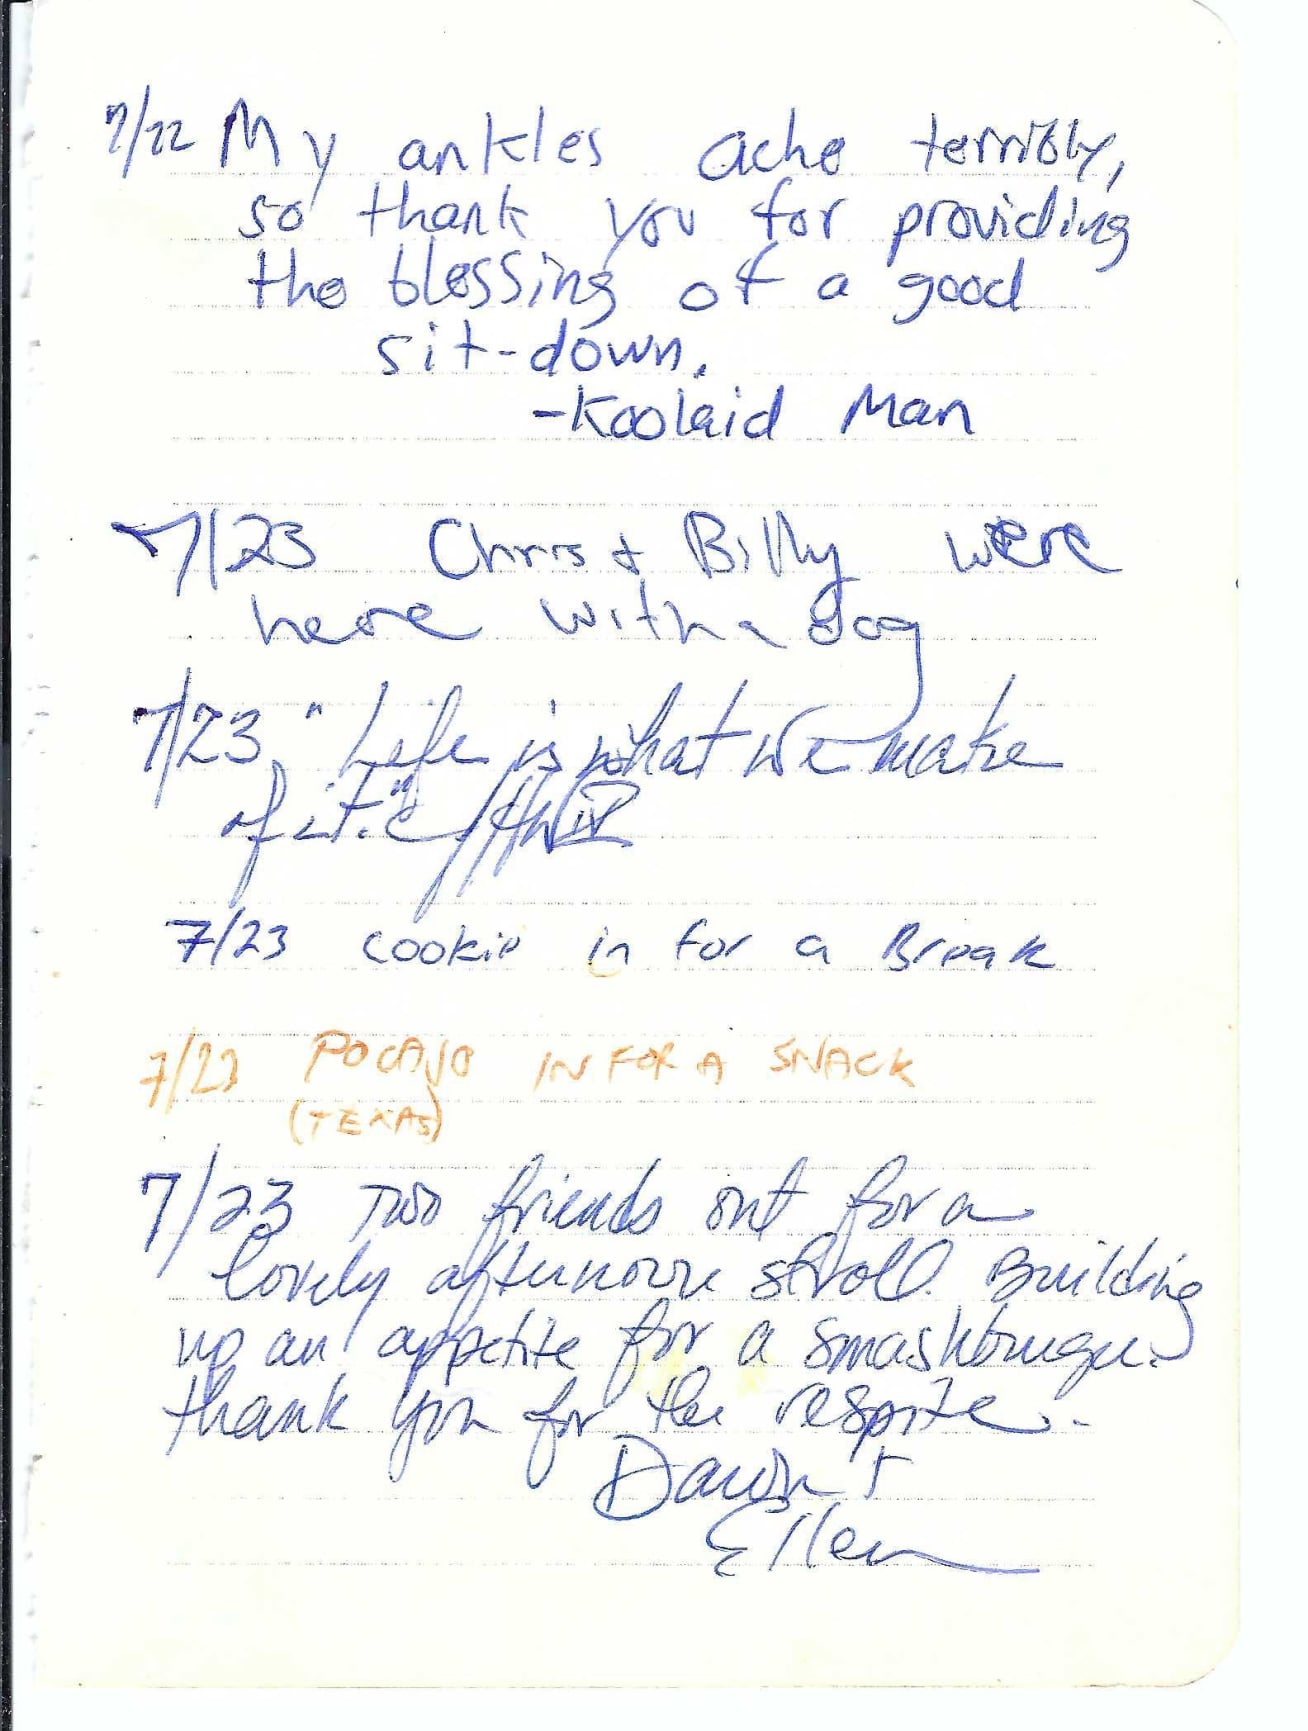 7/22 My ankles ache terribly,
so thank you for providing
the blessing of a good
sit-down.
-Koolaid Man
7/23 Chris + Billy were
here with a dog
7/23 "Life is what we make
of it."
7/23 cookie in for a Break
7/23 POCAJO IN FOR A SNACK
(TEXAS)
7/23 Two friends out for a
lovely afternoon stroll. Building
up an appetite for a Smashburger.
thank you for the respite.
Dawn +
Ellen